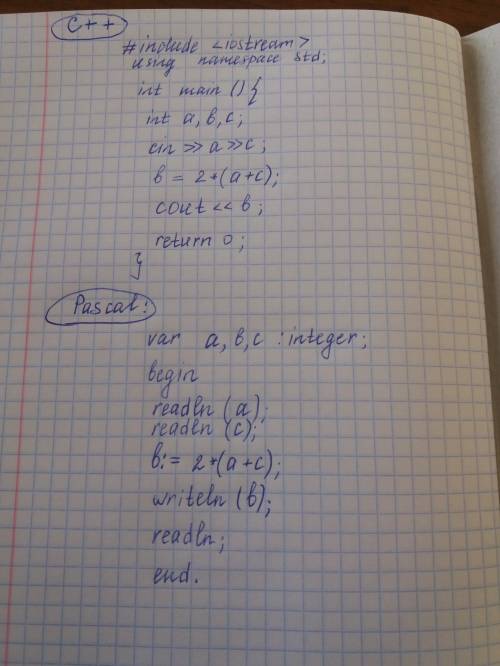 C++
#include <iostream>
using namespace std;
int main () {
int a, b, c;
cin >> a >> c;
b = 2*(a+c);
cout << b;
return 0;
}
Pascal:
var a, b, c : integer;
begin
readln (a);
readln (c);
b:= 2*(a+c);
writeln (b);
readln;
end.